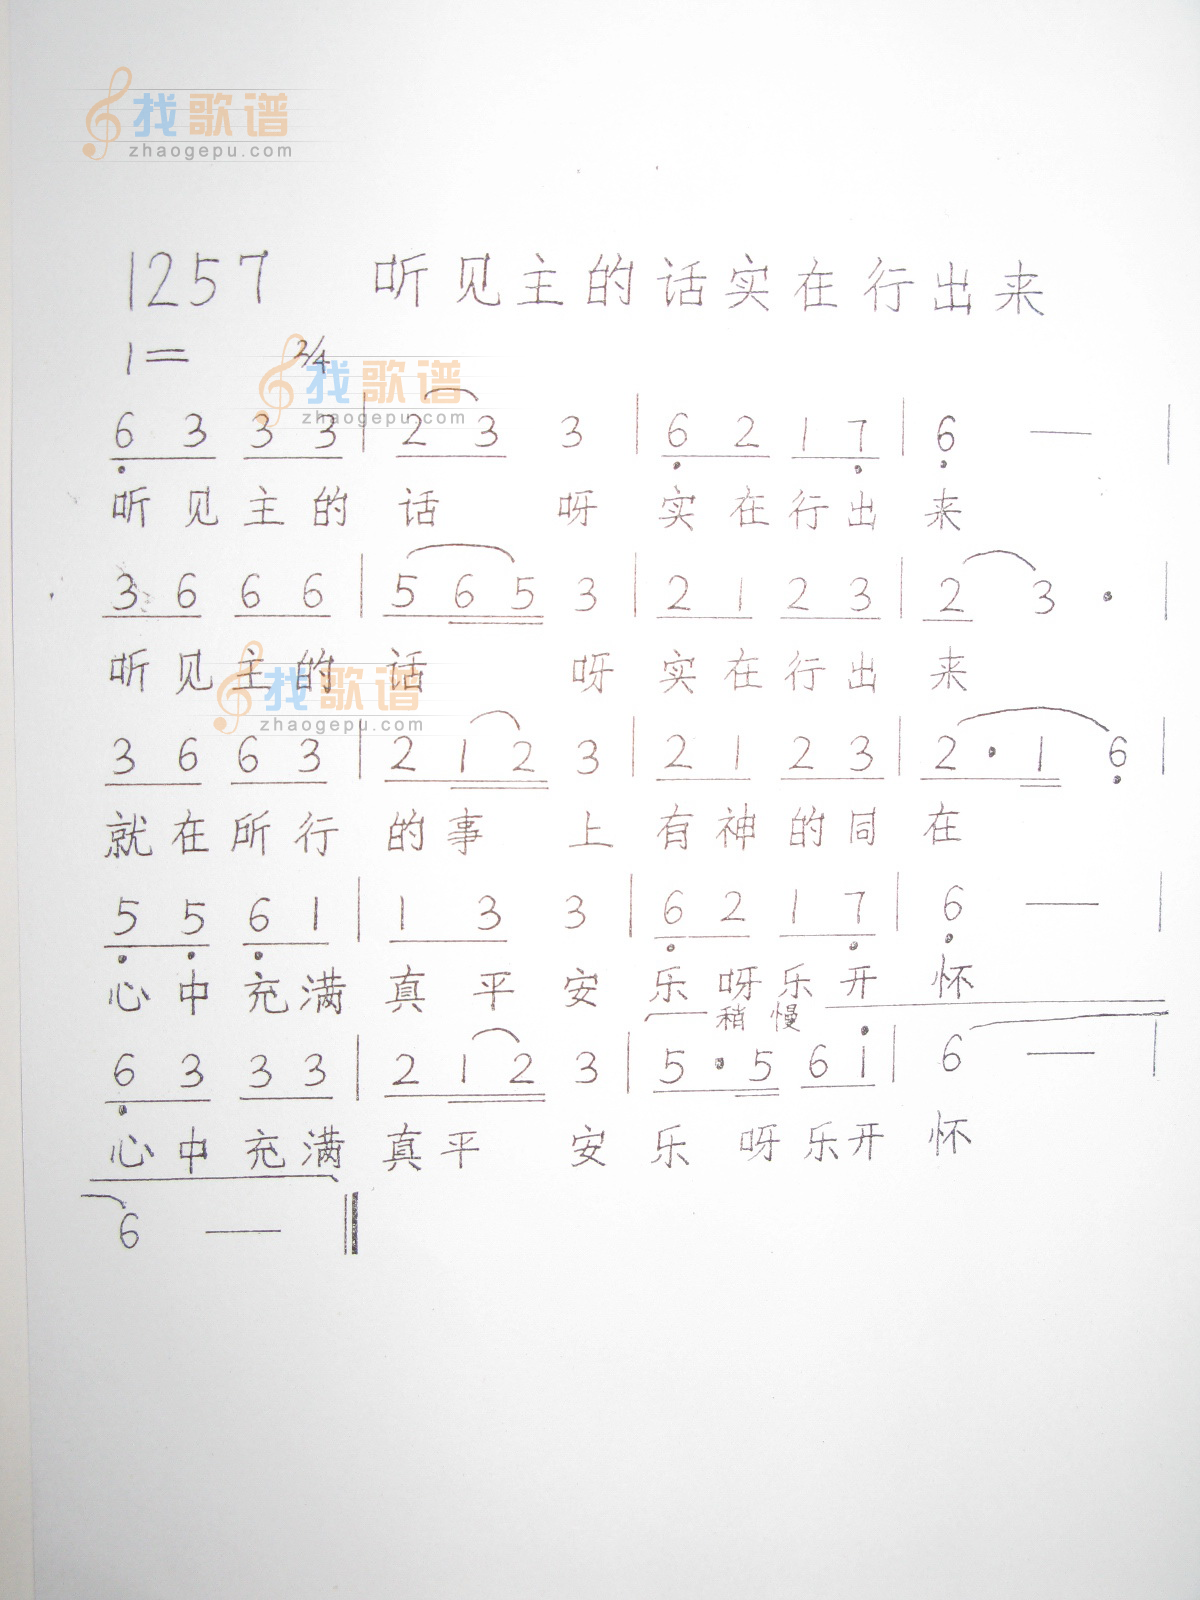 找歌谱
zhaogepu.com
1257 听见主的话实在行出来
1= 2/4
找歌谱
zhaogepu.com
6 3 3 3 | 2 3 3 | 6 2 1 7 | 6 — |
听见主的话 呀 实在行出来
3 6 6 6 | 5 6 5 3 | 2 1 2 3 | 2 3 · |
听见主的话 呀实在行出来
找歌谱
zhaogepu.com
3 6 6 3 | 2 1 2 3 | 2 1 2 3 | 2 · 1 6 |
就在所行的事 上有神的同在
5 5 6 1 | 1 3 3 | 6 2 1 7 | 6 — |
心中充满真平安乐呀乐开怀
稍慢
6 3 3 3 | 2 1 2 3 | 5 · 5 6 i | 6 — |
心中充满真平 安乐 呀乐开怀
6 — ‖